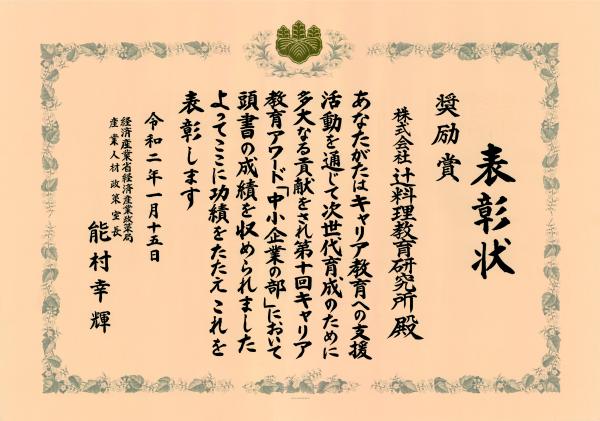 表彰状
奨励賞
株式会社 辻料理教育研究所 殿
あなたがたはキャリア教育への支援
活動を通じて次世代育成のために
多大なる貢献をされ第十回キャリア
教育アワード「中小企業の部」において
頭書の成績を収められました
よってここに功績をたたえこれを
表彰します
令和二年一月十五日
経済産業省経済産業政策局
産業人材政策室長
能村幸輝